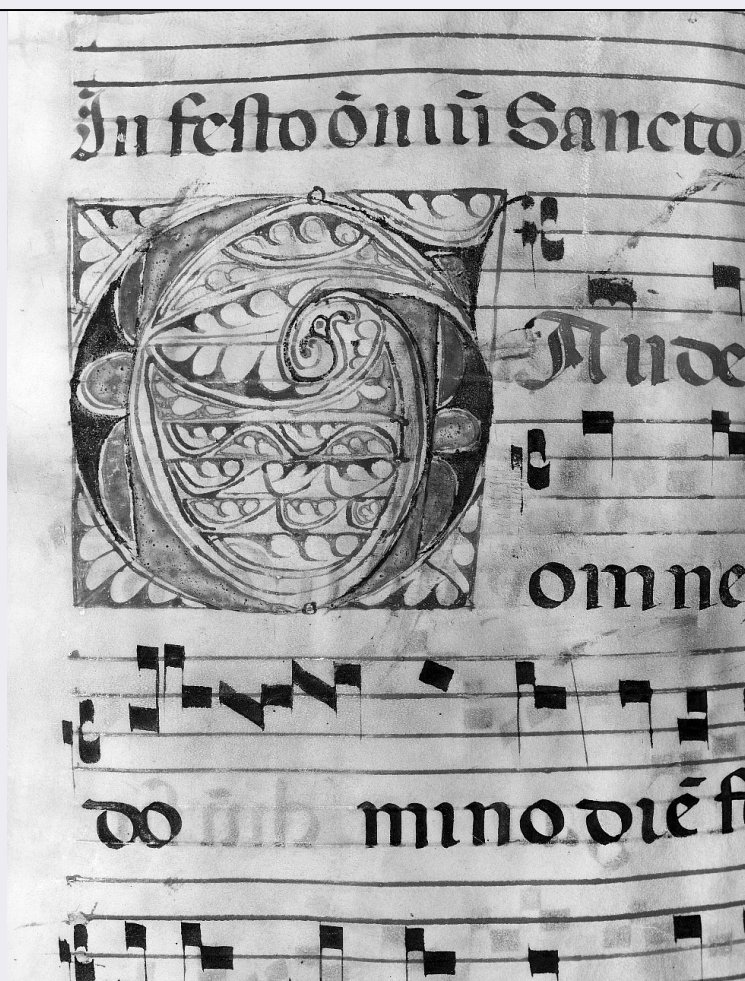 In festo õmiũ Sancto
G Aude
omne
do mino diẽ f